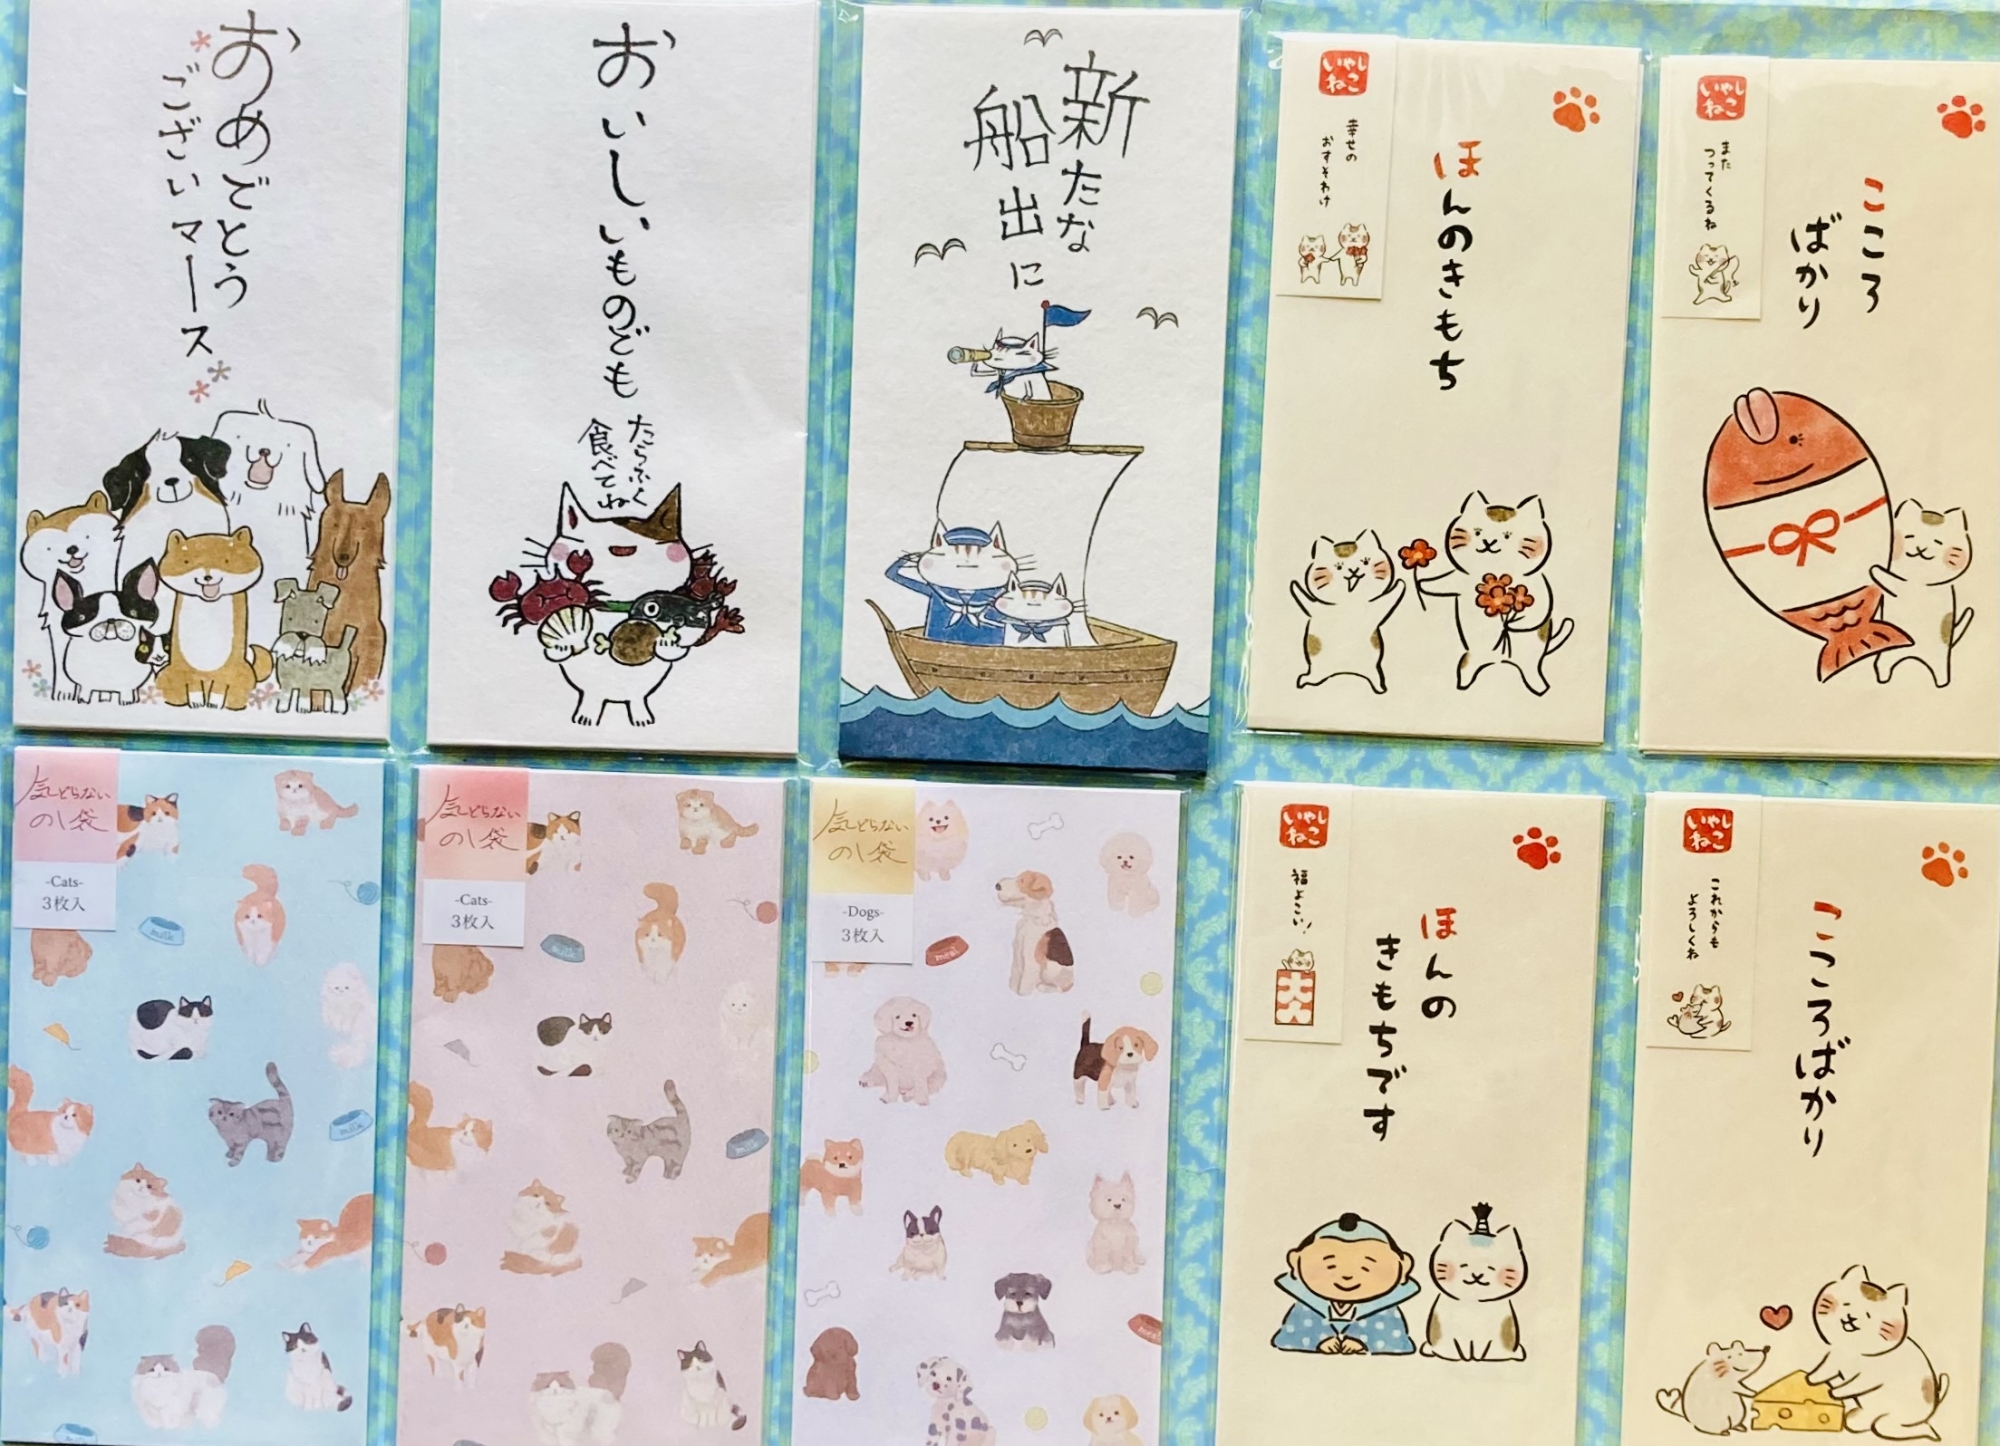 おめでとう
ございマース
おいしいものども
たらふく
食べてね
新たな
船出に
いやし
ねこ
幸せの
おすそわけ
ほんのきもち
いやし
ねこ
また
つってくるね
こころ
ばかり
気どらない
のし袋
-Cats-
3枚入
milk
milk
気どらない
のし袋
-Cats-
3枚入
milk
milk
気どらない
のし袋
-Dogs-
3枚入
meal
meal
いやし
ねこ
福よこい!
大入
ほんの
きもちです
いやし
ねこ
これからも
よろしくね
こころばかり